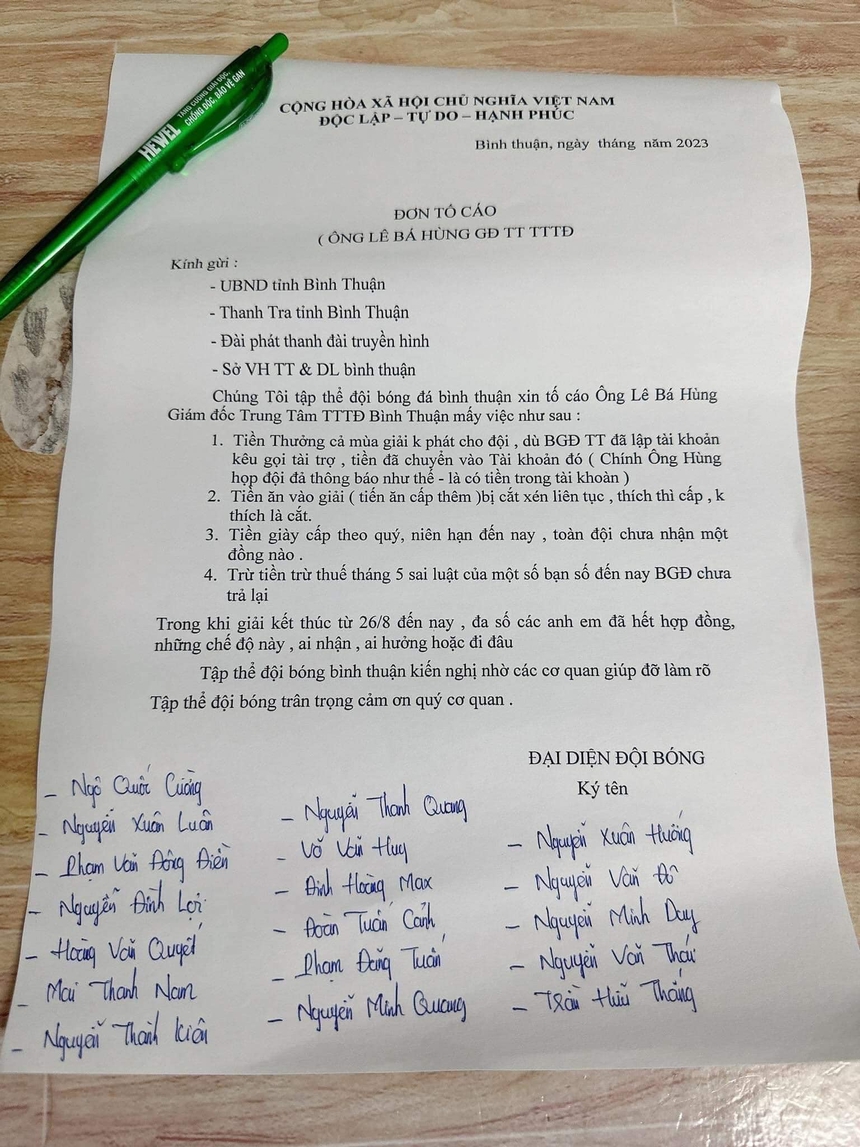 TĂNG CƯỜNG GIẢI ĐỘC,
CHỐNG ĐỘC, BẢO VỆ GAN
HEWEL
CỘNG HÒA XÃ HỘI CHỦ NGHĨA VIỆT NAM
ĐỘC LẬP – TỰ DO – HẠNH PHÚC
Bình thuận, ngày tháng năm 2023
ĐƠN TỐ CÁO
( ÔNG LÊ BÁ HÙNG GĐ TT TTTĐ
Kính gửi :
- UBND tỉnh Bình Thuận
- Thanh Tra tỉnh Bình Thuận
- Đài phát thanh đài truyền hình
- Sở VH TT & DL bình thuận
Chúng Tôi tập thể đội bóng đá bình thuận xin tố cáo Ông Lê Bá Hùng
Giám đốc Trung Tâm TTTĐ Bình Thuận mấy việc như sau :
1. Tiền Thưởng cả mùa giải k phát cho đội , dù BGĐ TT đã lập tài khoản
kêu gọi tài trợ , tiền đã chuyển vào Tài khoản đó ( Chính Ông Hùng
họp đội đả thông báo như thế - là có tiền trong tài khoản )
2. Tiền ăn vào giải ( tiến ăn cấp thêm )bị cắt xén liên tục , thích thì cấp , k
thích là cắt.
3. Tiền giày cấp theo quý, niên hạn đến nay , toàn đội chưa nhận một
đồng nào .
4. Trừ tiền trừ thuế tháng 5 sai luật của một số bạn số đến nay BGĐ chưa
trả lại
Trong khi giải kết thúc từ 26/8 đến nay , đa số các anh em đã hết hợp đồng,
những chế độ này , ai nhận , ai hưởng hoặc đi đâu
Tập thể đội bóng bình thuận kiến nghị nhờ các cơ quan giúp đỡ làm rõ
Tập thể đội bóng trân trọng cảm ơn quý cơ quan .
ĐẠI DIỆN ĐỘI BÓNG
Ký tên
- Ngô Quốc Cường
- Nguyễn Xuân Luân
- Phạm Văn Đông Điền
- Nguyễn Đình Lợi
- Hoàng Văn Quyết
- Mai Thanh Nam
- Nguyễn Thành Kiên
- Nguyễn Thanh Quang
- Võ Văn Huy
- Đinh Hoàng Max
- Đoàn Tuấn Cảnh
- Phạm Đăng Tuấn
- Nguyễn Minh Quang
- Nguyễn Xuân Hướng
- Nguyễn Văn Đô
- Nguyễn Minh Duy
- Nguyễn Văn Thái
- Trần Hữu Thắng